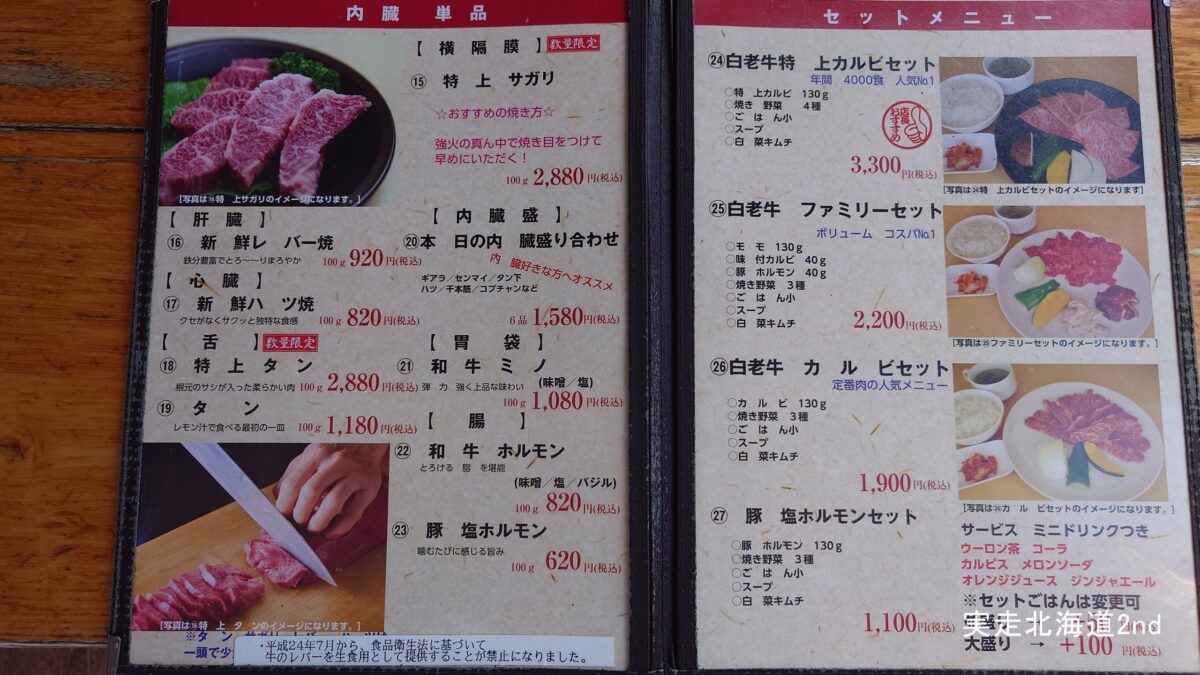 内臓 単品
【 横 隔 膜 】 数量限定
⑮ 特 上 サガリ
☆おすすめの焼き方☆
強火の真ん中で焼き目をつけて
早めにいただく！
100g 2,880円(税込)
[写真は⑮特 上サガリのイメージになります。]
【 肝 臓 】
⑯ 新 鮮レ バー焼
鉄分豊富でとろ〜〜りまろやか 100g 920円(税込)
【 心 臓 】
⑰ 新 鮮ハ ツ焼
クセがなくサクッと独特な食感 100g 820円(税込)
【 舌 】 数量限定
⑱ 特 上 タ ン
根元のサシが入った柔らかい肉 100g 2,880円(税込)
⑲ タ ン
レモン汁で食べる最初の一皿 100g 1,180円(税込)
【 内 臓 盛 】
⑳本 日の内 臓盛り合わせ
内 臓好きな方へオススメ
ギアラ／センマイ／タン下
ハツ／千本筋／コブチャンなど
6品 1,580円(税込)
【 胃 袋 】
㉑ 和 牛 ミ ノ
弾 力 強く上品な味わい (味噌／塩)
100g 1,080円(税込)
【 腸 】
㉒ 和 牛 ホルモン
とろける 脂 を堪能
(味噌／塩／バジル)
100g 820円(税込)
㉓ 豚 塩ホルモン
噛むたびに感じる旨み
100g 620円(税込)
[写真は⑱特 上 タ ンのイメージになります。]
一頭で少
・平成24年7月から、食品衛生法に基づいて
牛のレバーを生食用として提供することが禁止になりました。
セットメニュー
㉔白老牛特 上カルビセット
年間 4000食 人気№1
○特 上カルビ 130g
○焼き 野菜 4種
○ご はん小
○スープ
○白 菜キムチ
店長おすすめ
3,300円(税込)
[写真は㉔特 上カルビセットのイメージになります]
㉕白老牛 ファミリーセット
ボリューム コスパ№1
○モ モ 130g
○味 付カルビ 40g
○豚 ホルモン 40g
○焼き野菜 3種
○ご はん小
○スープ
○白 菜キムチ
2,200円(税込)
[写真は㉕ファミリーセットのイメージになります。]
㉖白老牛 カ ル ビセット
定番肉の人気メニュー
○カ ル ビ 130g
○焼き野菜 3種
○ご はん小
○スープ
○白 菜キムチ
1,900円(税込)
[写真は㉖カ ル ビセットのイメージになります。]
㉗ 豚 塩ホルモンセット
○豚 ホルモン 130g
○焼き野菜 3種
○ご はん小
○スープ
○白 菜キムチ
1,100円(税込)
サービス ミニドリンクつき
ウーロン茶 コーラ
カルピス メロンソーダ
オレンジジュース ジンジャエール
※セットごはんは変更可
大盛り → +100円(税込)
実走北海道2nd